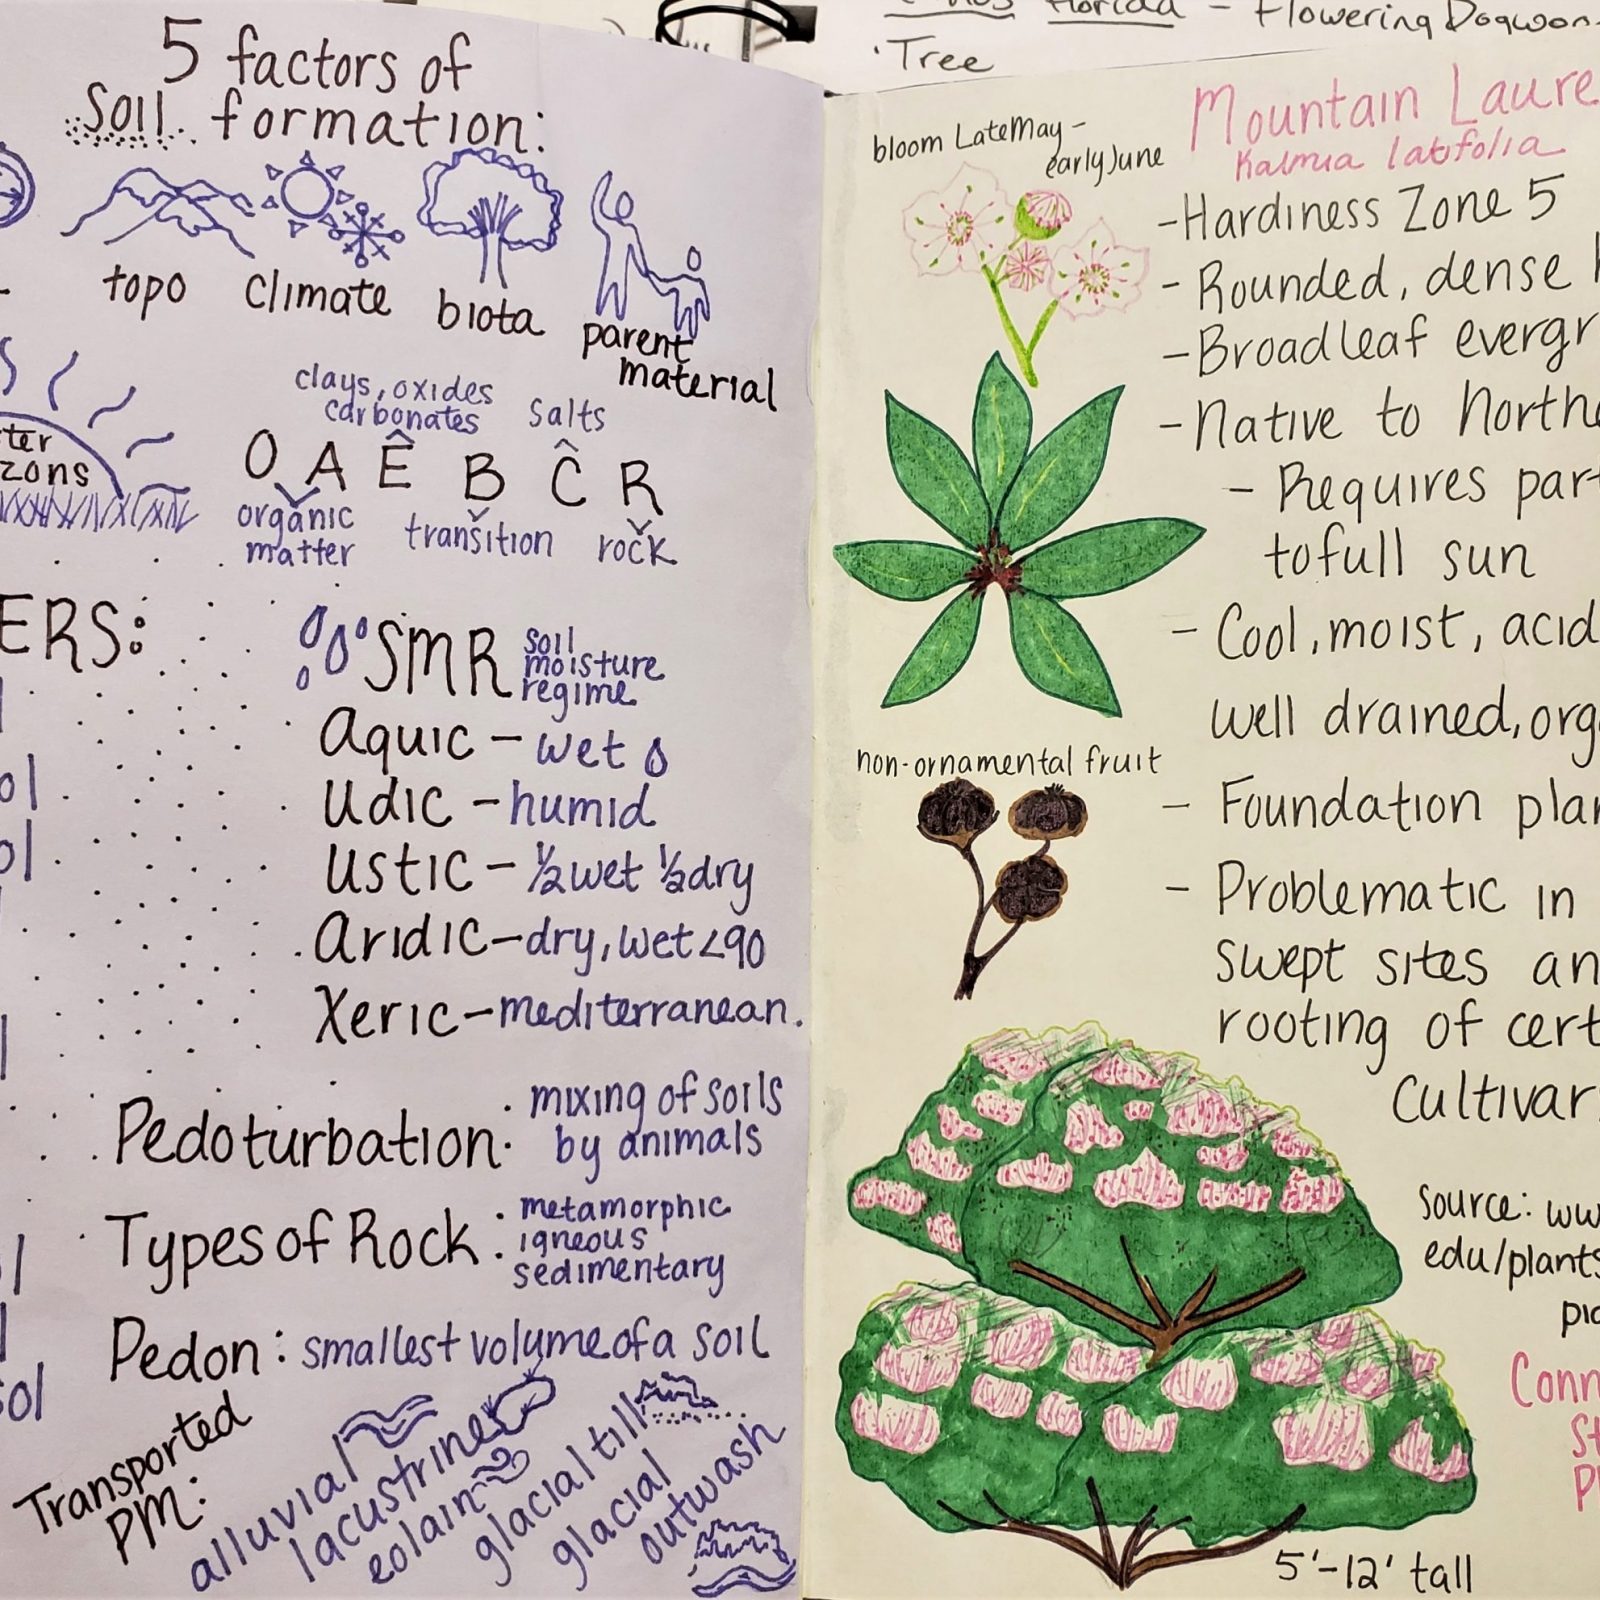 5 factors of
soil formation:
topo climate biota parent
material
clays, oxides
carbonates
salts
O A E B C R
organic
matter
transition
rock
ter
zons
ERS:
SMR
soil
moisture
regime
Aquic - wet
Udic - humid
Ustic - 1/2 wet 1/2 dry
Aridic - dry, wet <90
Xeric - mediterranean.
Pedoturbation: mixing of soils
by animals
Types of Rock: metamorphic
igneous
sedimentary
Pedon: smallest volume of a soil
Transported
PM:
alluvial
lacustrine
eolain
glacial till
glacial
outwash
ol
ol
sol
Florida - Flowering Dogwoo
Tree
Mountain Laure
Kalmia latifolia
bloom Late May -
early June
- Hardiness Zone 5
- Rounded, dense
- Broadleaf evergr
- Native to North
- Requires par
to full sun
- Cool, moist, acid
well drained, org
non-ornamental fruit
- Foundation plan
- Problematic in
swept sites an
rooting of cert
cultivar
source: ww
edu/plants
Conn
St
Pl
5'-12' tall